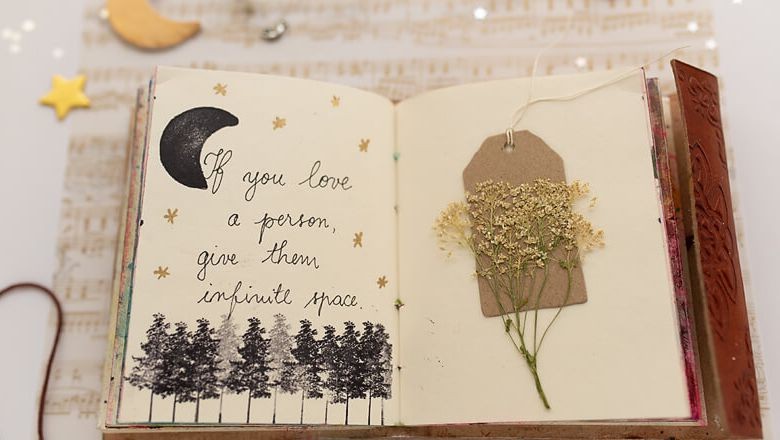 If you love
a person,
give them
infinite space.